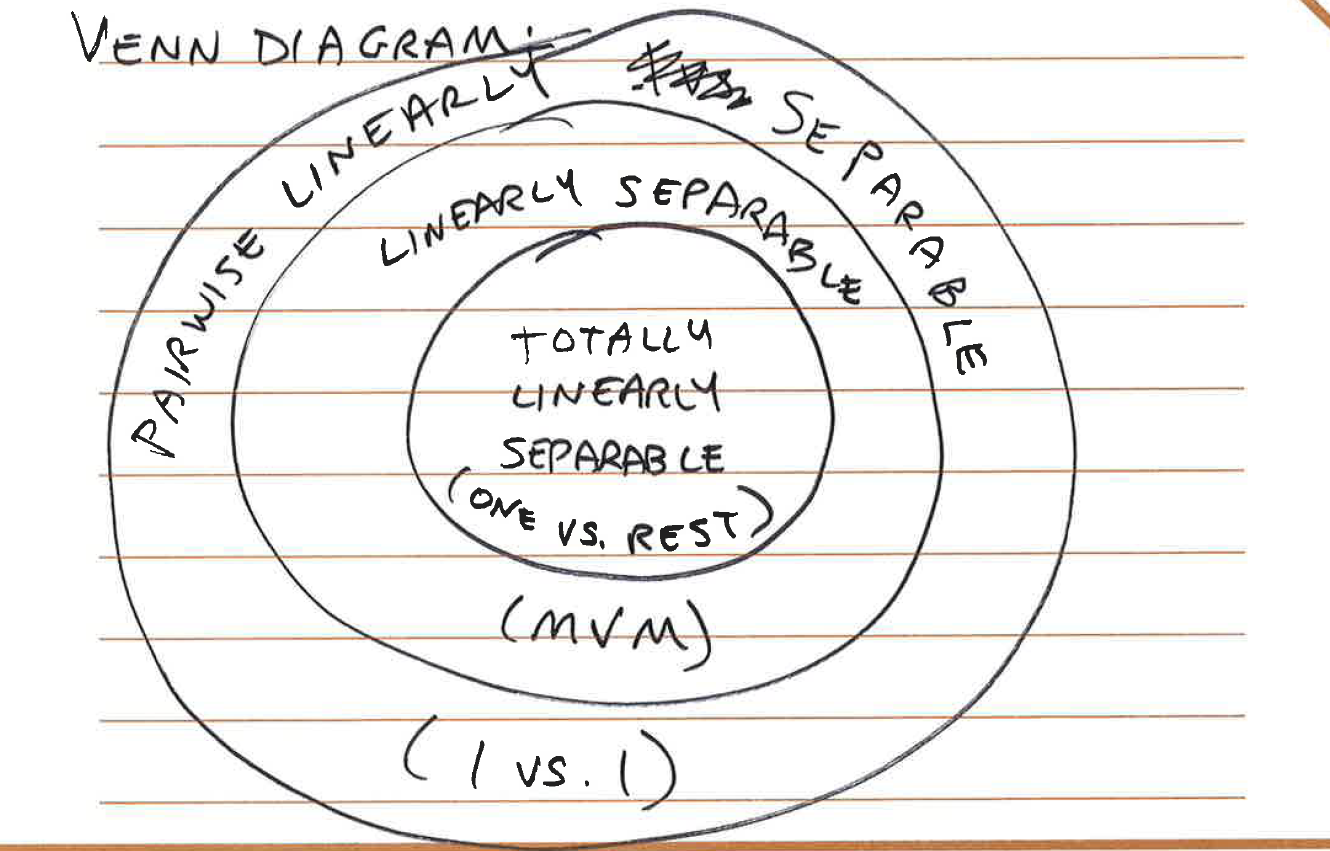 VENN DIAGRAM:
PAIRWISE LINEARLY SEPARABLE
LINEARLY SEPARABLE
TOTALLY
LINEARLY
SEPARABLE
(ONE VS. REST)
(MVM)
(1 VS. 1)